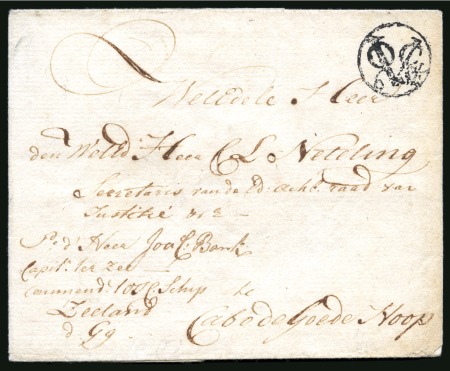 Weledele Heer
den Weled Heer C L Neteling
Secretaris van de Ed. achb. raad van
Justitie &ca
Pr. d' Heer Joa C. Bank
Capit. ter Zee
Commend. 't OIC Schip
Zeeland
d Gg.
te
Cabo de Goede Hoop